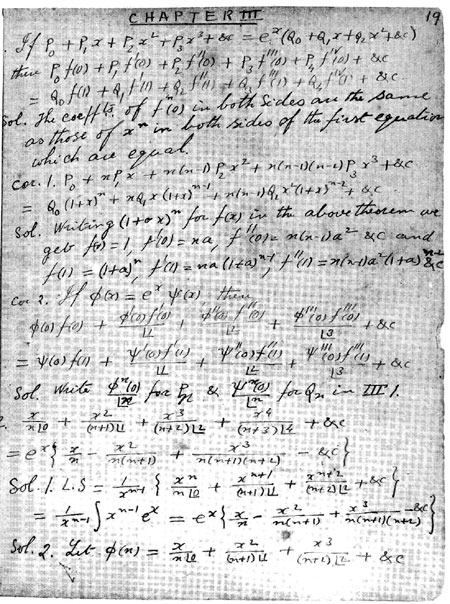 CHAPTER III
19
1. If P₀ + P₁x + P₂x² + P₃x³ + &c = eˣ(Q₀ + Q₁x + Q₂x² + &c)
then P₀f(0) + P₁f'(0) + P₂f''(0) + P₃f'''(0) + P₄f''''(0) + &c
= Q₀f(1) + Q₁f'(1) + Q₂f''(1) + Q₃f'''(1) + Q₄f''''(1) + &c
Sol. The coeffts of fⁿ(0) in both sides are the same
as those of xⁿ in both sides of the first equation
which are equal.
Cor. 1. P₀ + nP₁x + n(n-1)P₂x² + n(n-1)(n-2)P₃x³ + &c
= Q₀(1+x)ⁿ + nQ₁x(1+x)ⁿ⁻¹ + n(n-1)Q₂x²(1+x)ⁿ⁻² + &c
Sol. Writing (1+ax)ⁿ for f(x) in the above theorem we
get f(0) = 1, f'(0) = na, f''(0) = n(n-1)a² &c and
f(1) = (1+a)ⁿ, f'(1) = na(1+a)ⁿ⁻¹, f''(1) = n(n-1)a²(1+a)ⁿ⁻² &c
Cor 2. If φ(x) = eˣ ψ(x) then
φ(0)f(0) + φ'(0)f'(0)/|1 + φ''(0)f''(0)/|2 + φ'''(0)f'''(0)/|3 + &c
= ψ(0)f(1) + ψ'(0)f'(1)/|1 + ψ''(0)f''(1)/|2 + ψ'''(0)f'''(1)/|3 + &c
Sol. Write φⁿ(0)/|n for Pₙ & ψⁿ(0)/|n for Qₙ in III 1.
2. x/n|0 + x²/(n+1)|1 + x³/(n+2)|2 + x⁴/(n+3)|4 + &c
= eˣ{x/n - x²/n(n+1) + x³/n(n+1)(n+2) - &c}
Sol. 1. L.S = 1/xⁿ⁻¹ {xⁿ/n|0 + xⁿ⁺¹/(n+1)|1 + xⁿ⁺²/(n+2)|2 + &c}
= 1/xⁿ⁻¹ ∫ xⁿ⁻¹eˣ = eˣ{x/n - x²/n(n+1) + x³/n(n+1)(n+2) - &c}
Sol. 2. Let φ(n) = x/n|0 + x²/(n+1)|1 + x³/(n+2)|2 + &c